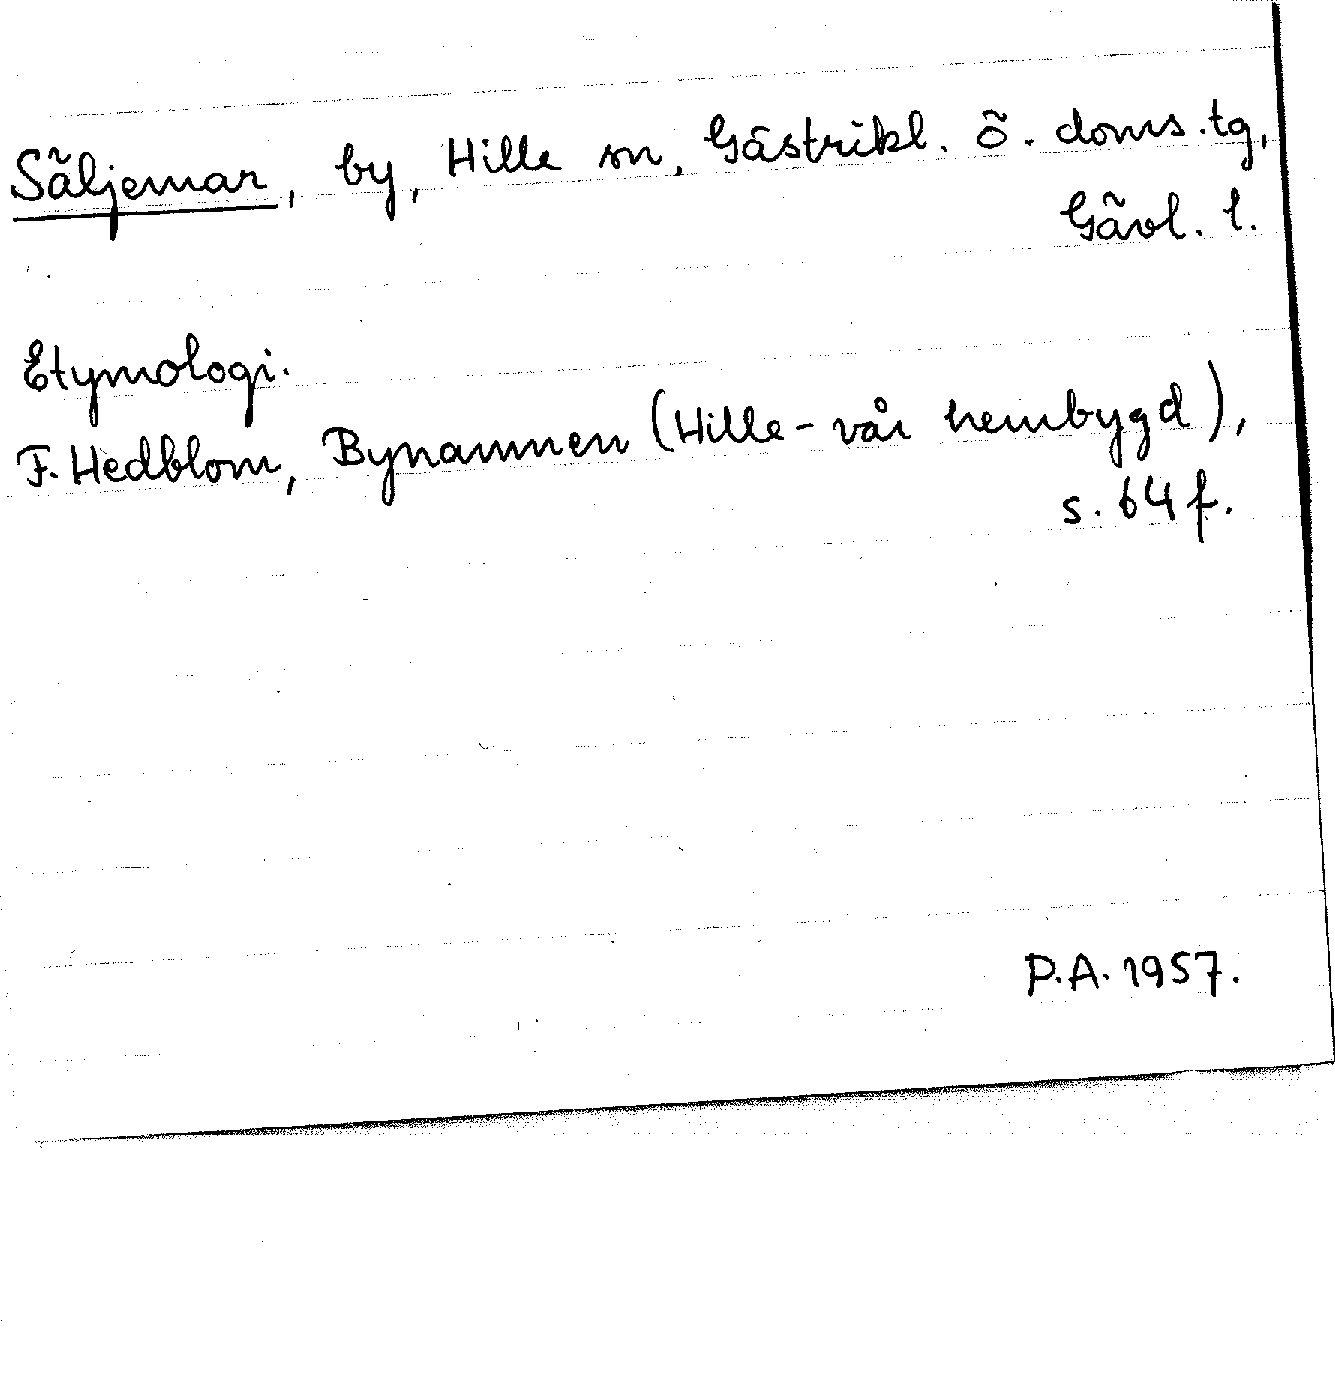 Säljemar, by, Hille sn, Gästrikl. ö. doms.tg,
Gävl. l.
Etymologi.
F. Hedblom, Bynamnen (Hille - vår hembygd),
s. 64 f.
P.A. 1957.